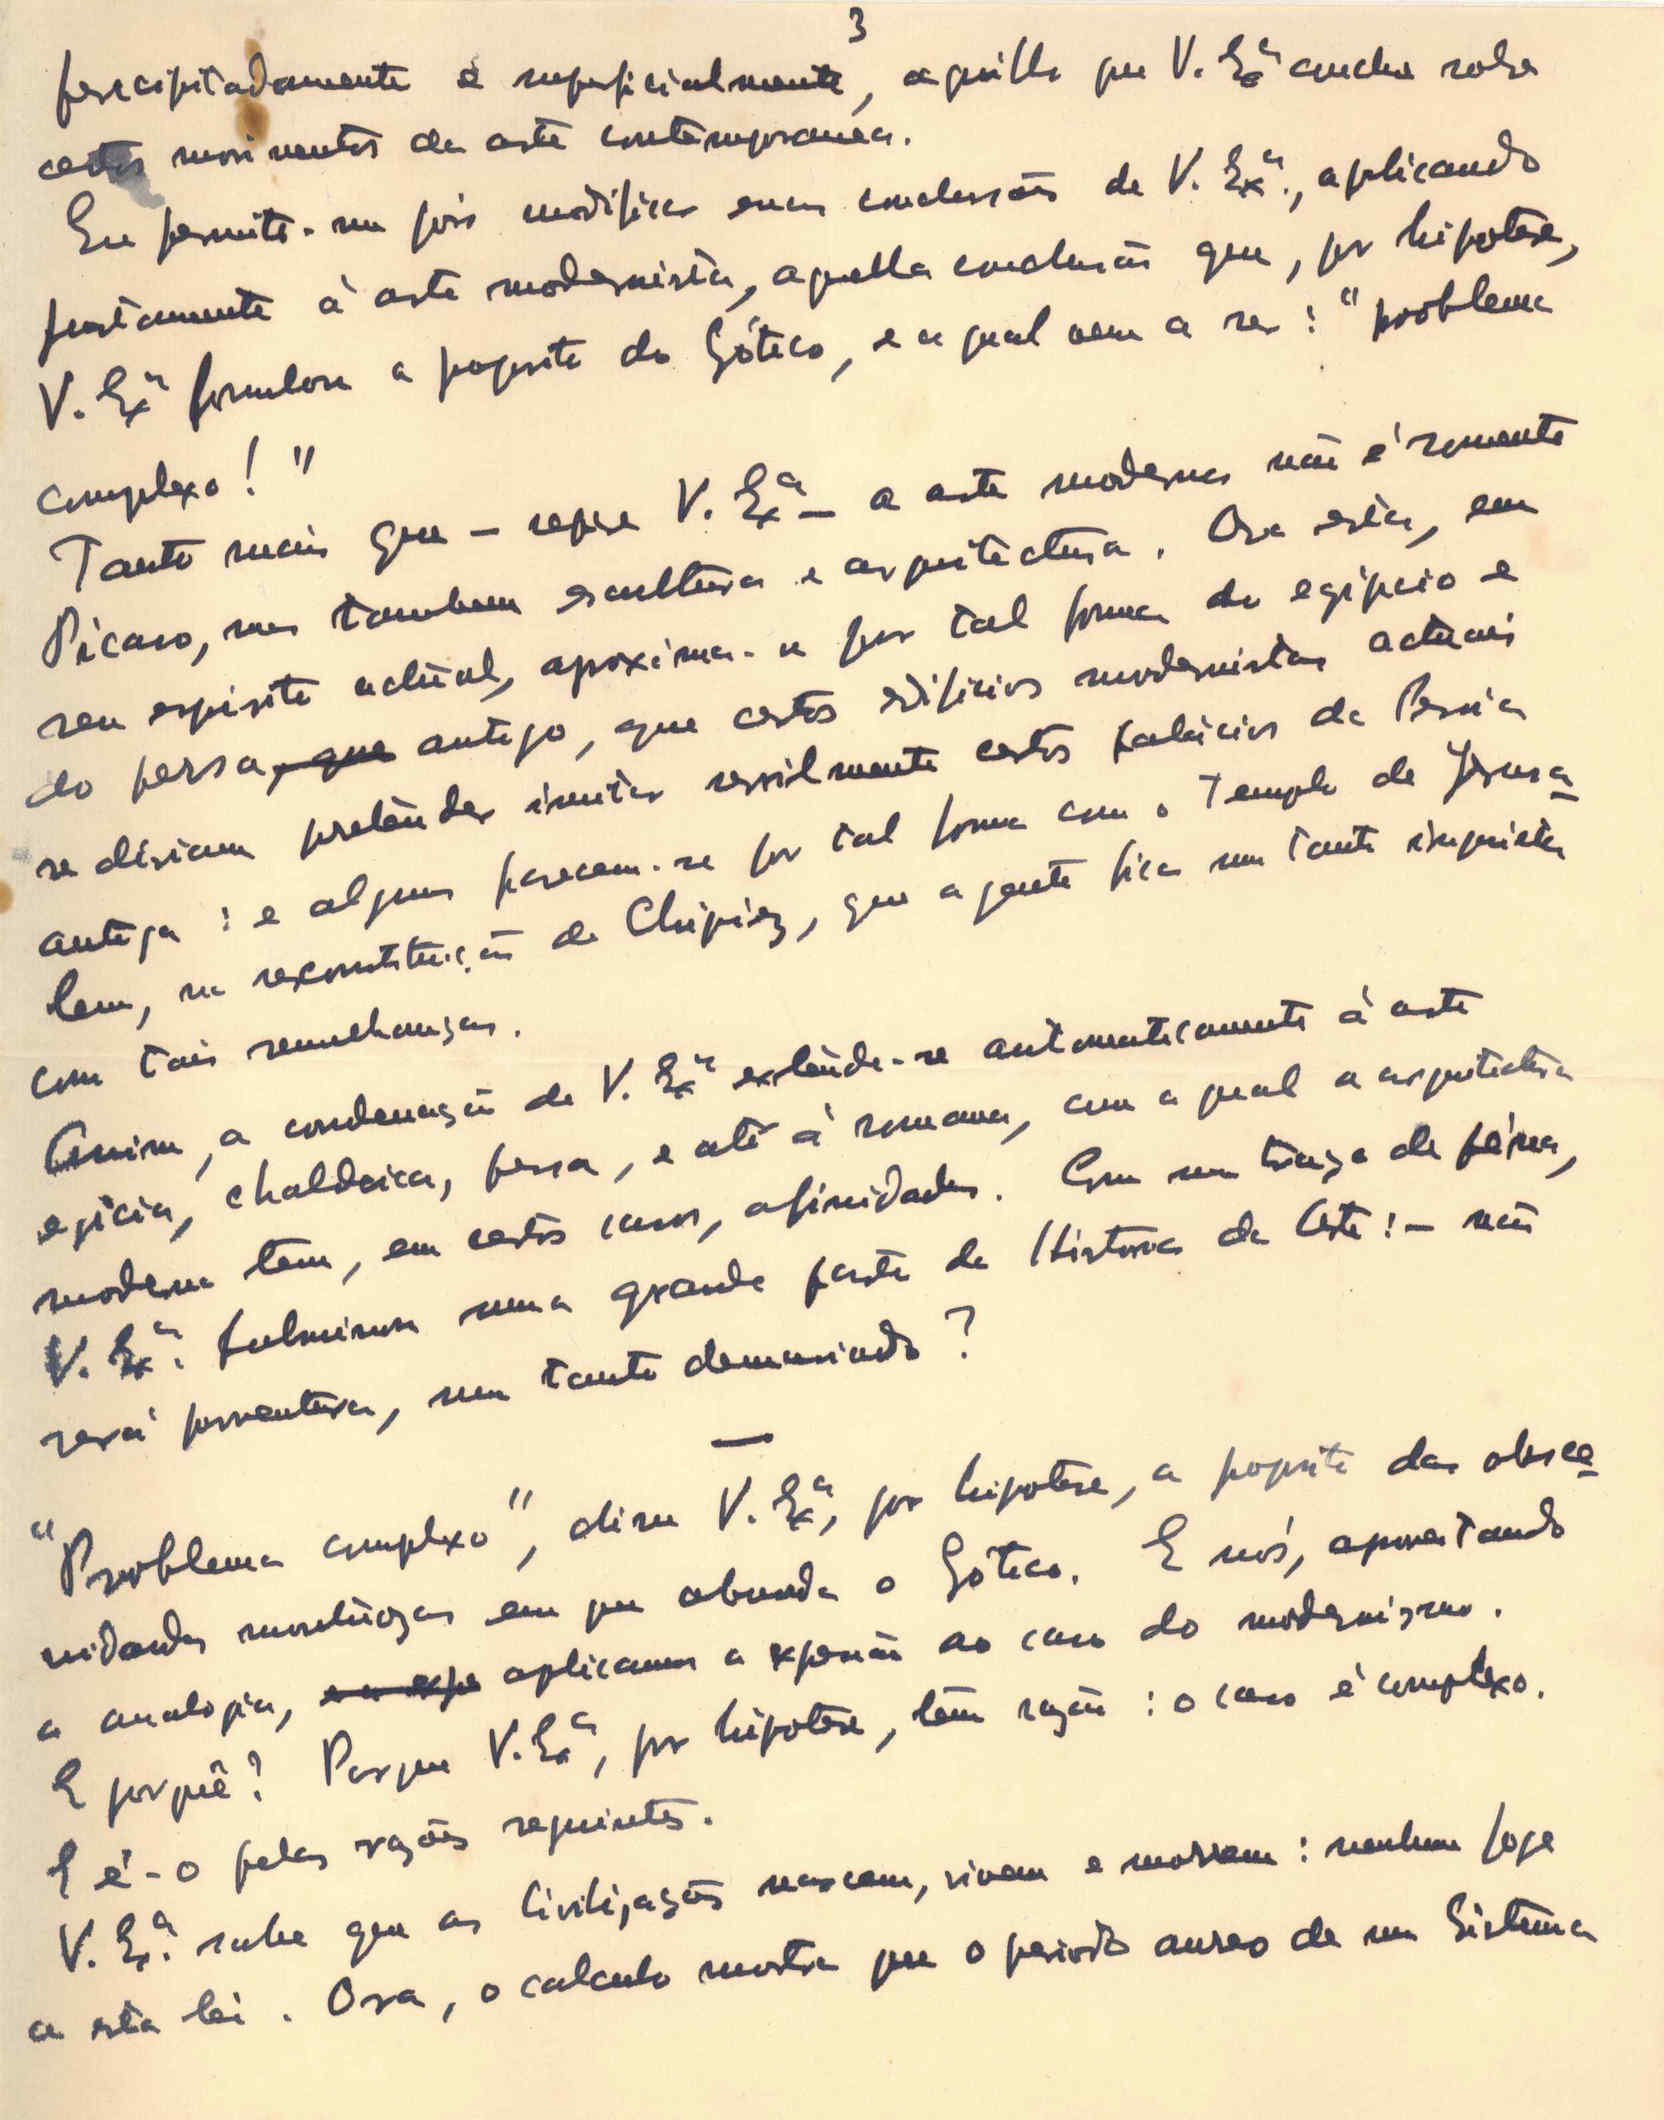 3
precipitadamente e superficialmente, aquillo que V. Exª conclue sobre
certos movimentos da arte contemporanea.
Eu permito-me pois modificar essa conclusão de V. Exª., aplicando
justamente à arte modernista, aquella conclusão que, por hipotese,
V. Exª formulou a proposito do Gótico, e a qual vem a ser: "problema
complexo!"
Tanto mais que – repare V. Exª – a arte moderna não é somente
Picasso, mas tambem escultura e arquitectura. Ora esta, em
seu espirito actual, aproxima-se por tal forma do egipcio e
do persa, que antigo, que certos edificios modernistas actuais
se diriam pretender imitar servilmente certos palacios da Persia
antiga: e alguns parecem-se por tal forma com o Templo de Jerusa
lem, na reconstituição de Chipiez, que a gente fica um tanto inquieta
com tais semelhanças.
Assim, a condenação de V. Exª extende-se automaticamente à arte
egicia, chaldaica, persa, e até à romana, com a qual a arquitectura
moderna tem, em certos casos, afinidades. Com um traço de pena,
V. Exª. fulminou uma grande parte da Historia da Arte! – não
será porventura, um tanto demasiado?
—
"Problema complexo", disse V. Exª, por hipotese, a proposito das obsce
nidades monstruosas em que abunda o Gótico. E nós, aproveitando
a analogia, e a expr aplicamos a expressão ao caso do modernismo.
E porquê? Porque V. Exª, por hipotese, têm razão: o caso é complexo.
E é-o pelas razões seguintes.
V. Exª. sabe que as Civilizações nascem, vivem e morrem: nenhuma foge
a esta lei. Ora, o calculo mostra que o periodo aureo de um Sistema